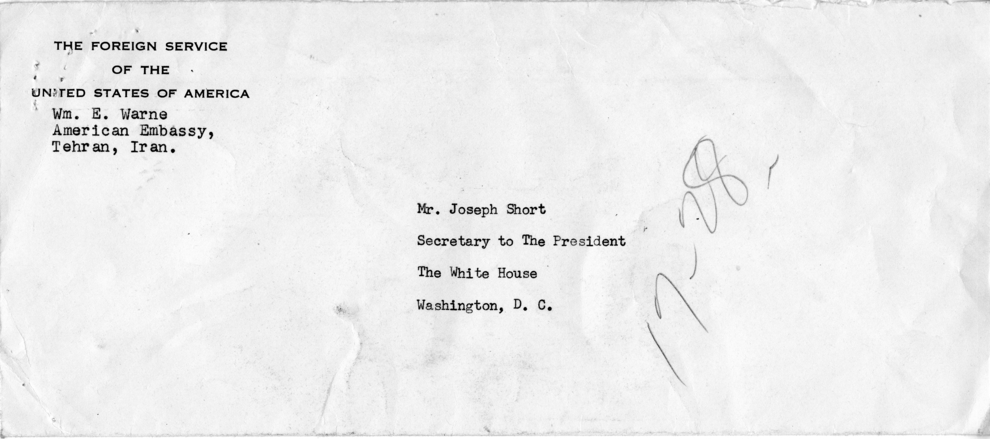 THE FOREIGN SERVICE
OF THE
UNITED STATES OF AMERICA
Wm. E. Warne
American Embassy,
Tehran, Iran.
Mr. Joseph Short
Secretary to The President
The White House
Washington, D. C.